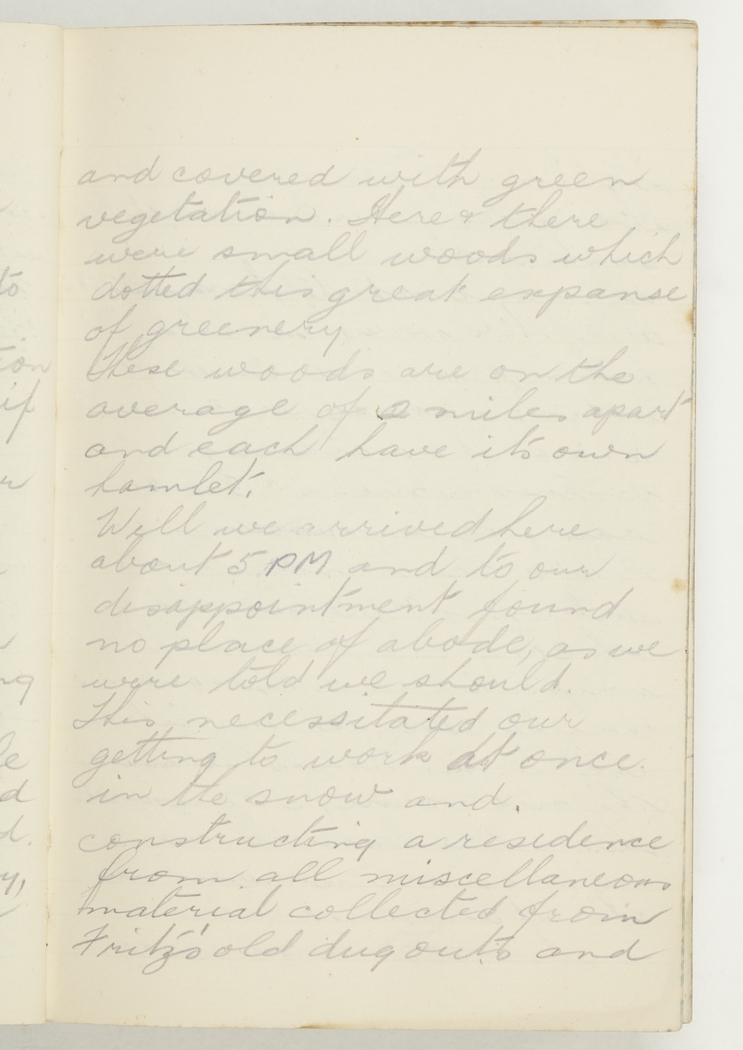 and covered with green
vegetation. Here & there
were small woods which
dotted this great expanse
of greenery
These woods are on the
average of 2 miles apart
and each have its own
hamlet.
Well we arrived here
about 5 PM and to our
disappointment found
no place of abode, as we
were told we should.
This necessitated our
getting to work at once.
in the snow and.
constructing a residence
from all miscellaneous
material collected from
Fritz's old dugouts and
to
tion
if
ng
le
d
d.
y,